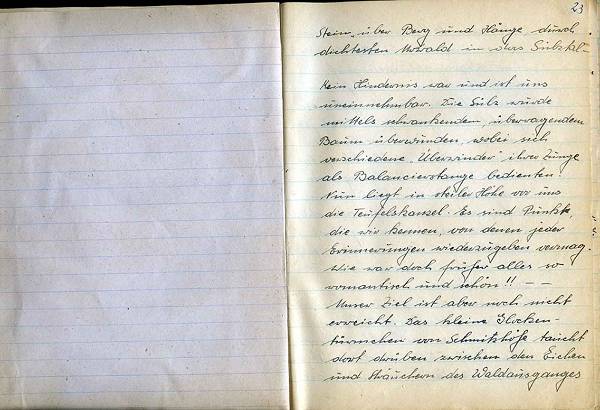 23
Stein, über Berg und Hänge durch
dichtesten Urwald in das Sülztal.
Kein Hindernis war und ist uns
uneinnehmbar. Die Sülz wurde
mittels schwankenden, überragendem
Baum überwunden, wobei sich
verschiedene „Überwinder" ihrer Zunge
als Balancierstange bedienten.
Nun liegt in steiler Höhe vor uns
die Teufelskanzel. Es sind Punkte,
die wir kennen, von denen jeder
Erinnerungen wiederzugeben vermag.
Wie war doch früher alles so
romantisch und schön!! – –
Unser Ziel ist aber noch nicht
erreicht. Das kleine Glocken-
türmchen von Schmitzhöfe taucht
dort drüben zwischen den Eichen
und Sträuchern des Waldausganges